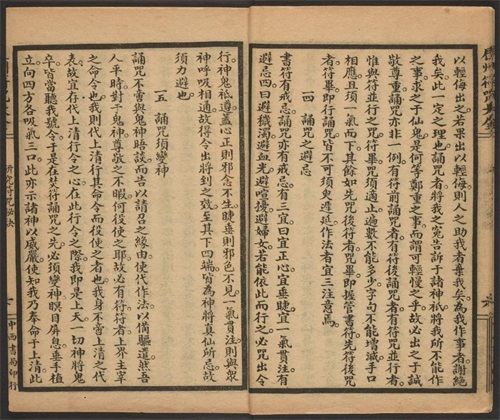 以輕侮出之若果出以輕侮則人之助我者棄我矣為我作事者謝絕
我矣此一定之理也誦咒者將我之冤告訴于諸神祇將我所不能作
之事求之于仙鬼是何等鄭重之事而謂可輕慢之乎故必出之于誠
敬尊重誦咒亦非一例有符前誦咒者有符後誦咒者有符咒並行者
惟與符並行之咒符畢咒須適止遍數不能多少字句不能增減手口
相應且須一氣而下其餘如先咒後符者咒畢即握管書符先符後咒
者符畢即行誦咒皆不可須臾遲延作法者宜三注意焉
一四 誦咒之避忌
書符有戒忌誦咒亦有戒忌有三宜曰宜正心宜垂睫宜一氣貫注有
四忌曰避穢濁避血光避喧擾避婦女若能依此而行之必咒出令
行神鬼祇遵蓋心正則邪念不生睫垂則邪色不見一氣貫注則與衆
神呼吸相通故得令出將到之效至其下四端皆為神將真仙所忌故
須力避也
一五 誦咒須變神
誦咒不當與鬼神晤談而告以請召之緣由使代作法以備驅遣然吾
人平時對于鬼神尊敬之不暇何役使之耶故必有符符者上界主宰
之命令也我則代上清行其命令而役使之者也我身不啻上清之代
表故宜存我代上清行令之心在此行令之際我即是上天一切神將鬼
卒皆當聽我號令于是在焚符誦咒之先必須瞑目屏息垂手植
立向四方各吸氣三口此亦示諸神以威嚴使知我乃奉命于上清此
中西書局印行